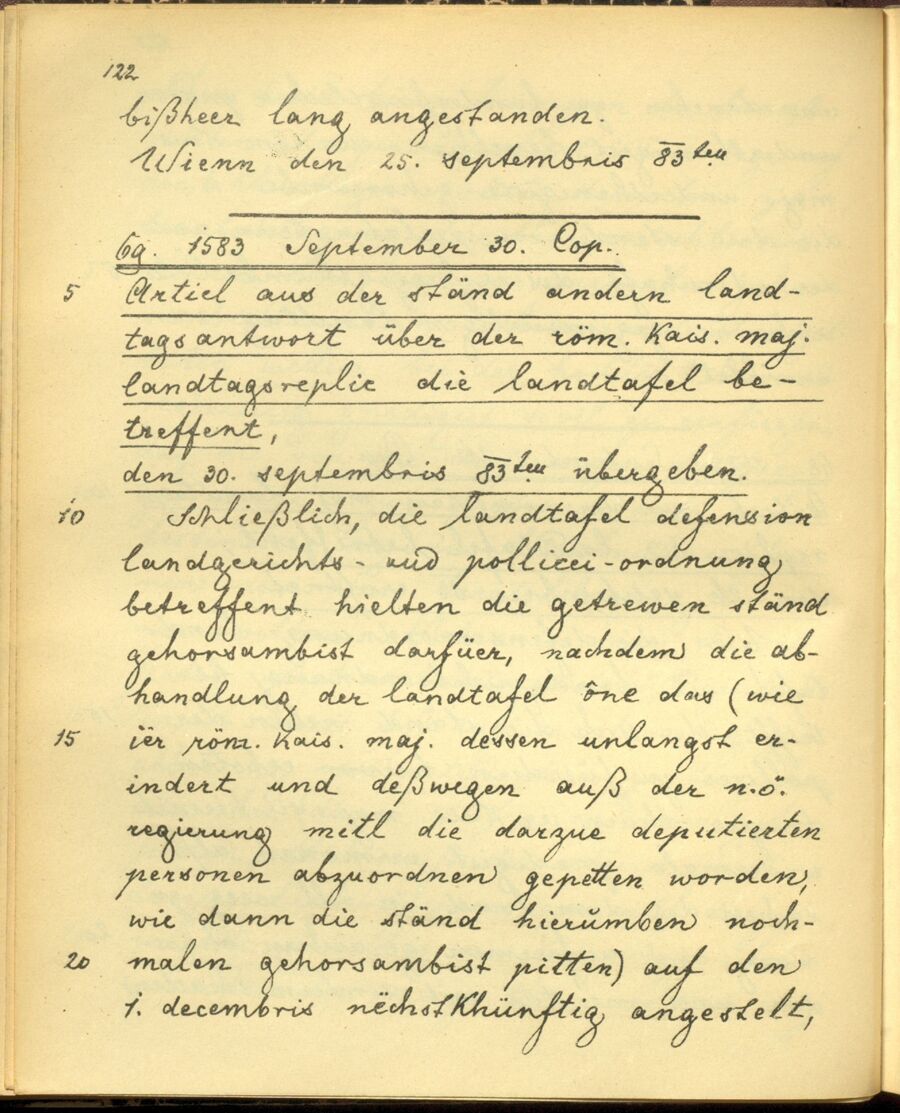 122
bißheer lang angestanden.
Wienn den 25. septembris 83ten
6g. 1583 September 30. Cop.
5 Articl aus der ständ andern land-
tagsantwort über der röm. Kais. maj.
landtagsreplic die landtafel be-
treffent,
den 30. septembris 83ten übergeben.
10 Schließlich, die landtafel defension
landgerichts- und pollicei-ordnung
betreffent hielten die getrewen ständ
gehorsambist darfüer, nachdem die ab-
handlung der landtafel ône das (wie
15 iër röm. Kais. maj. dessen unlangst er-
indert und deßwegen auß der n.ö.
regierung mitl die darzue deputierten
personen abzuordnen gepetten worden,
wie dann die ständ hierumben noch-
20 malen gehorsambist pitten) auf den
1. decembris nëchstkhünftig angestelt,